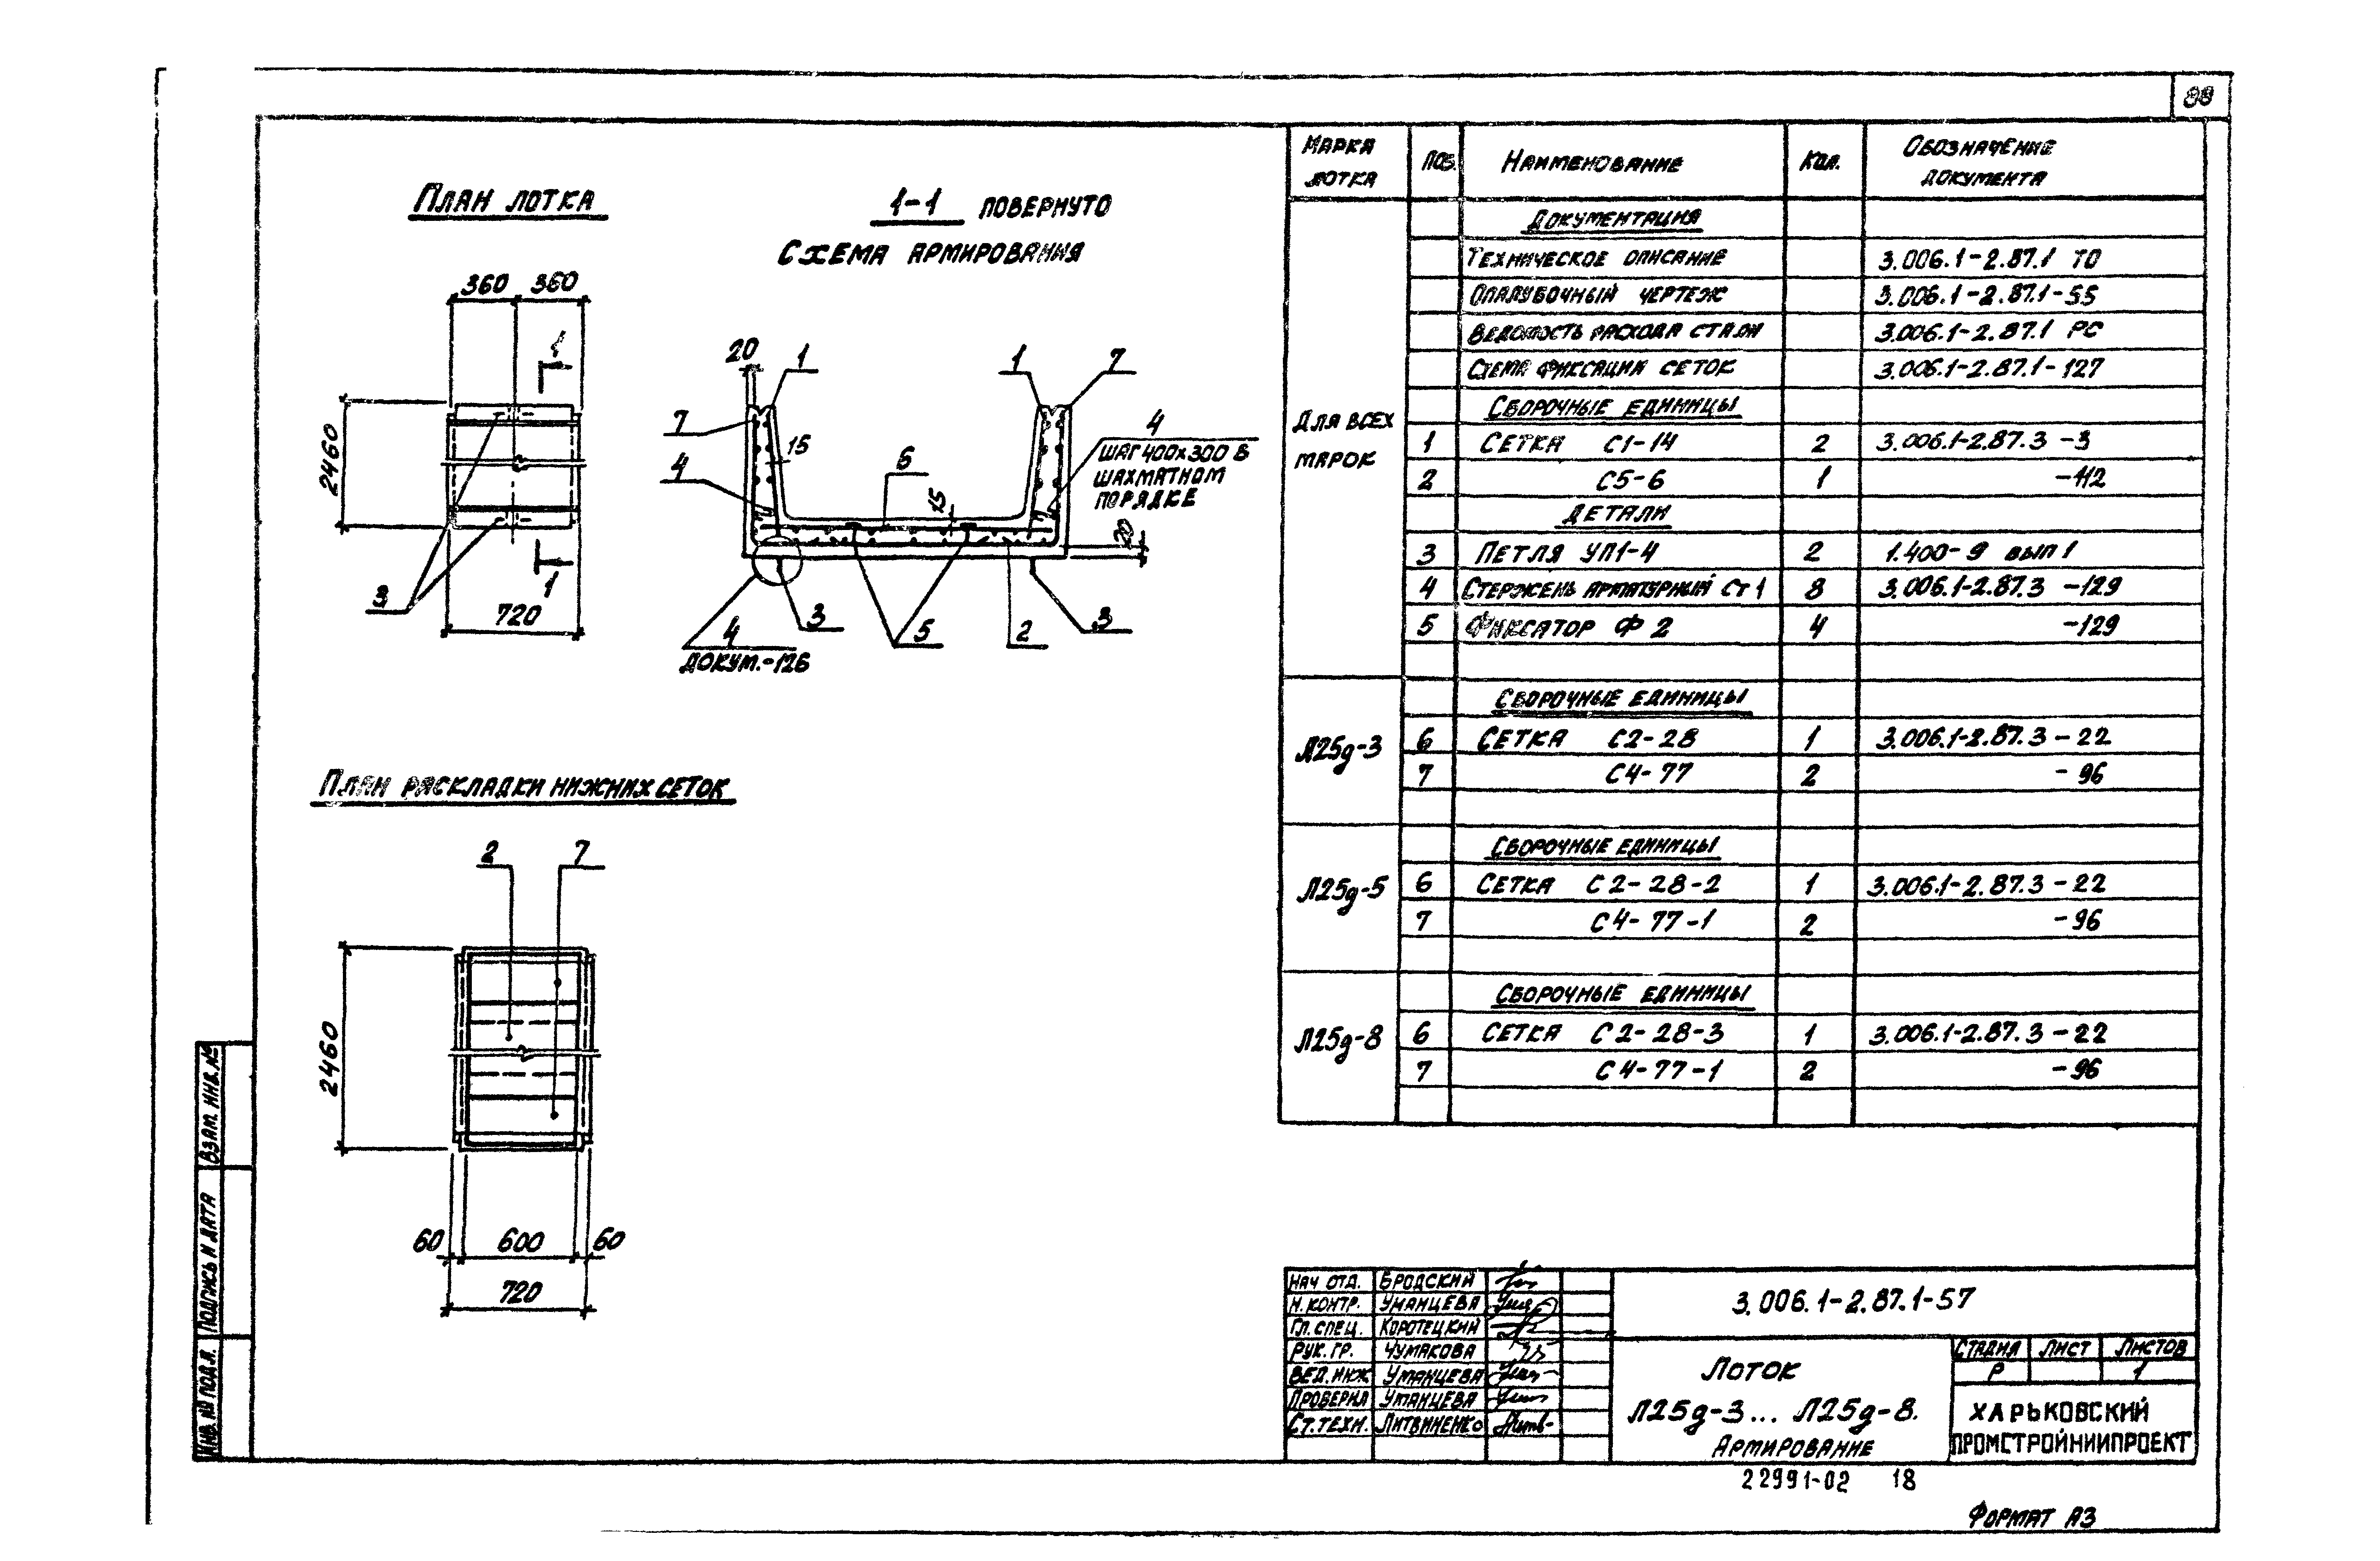 88
План лотка
1-1 повернуто
Схема армирования
360 360
1
2460
3
1
720
20 1 1 7
7
15
4
6
15
4
шаг 400х300 в
шахматном
порядке
20
4
докум.-126
3 5 2 3
План раскладки нижних сеток
2 7
2460
60 600 60
720
Марка лотка Поз. Наименование Кол. Обозначение документа
Для всех марок
Документация
Техническое описание 3.006.1-2.87.1 ТО
Опалубочный чертеж 3.006.1-2.87.1-55
Ведомость расхода стали 3.006.1-2.87.1 РС
Схема фиксации сеток 3.006.1-2.87.1-127
Сборочные единицы
1 Сетка С1-14 2 3.006.1-2.87.3 -3
2 С5-6 1 -112
Детали
3 Петля УП1-4 2 1.400-9 вып 1
4 Стержень арматурный Ст 1 8 3.006.1-2.87.3 -129
5 Фиксатор Ф 2 4 -129
Л25д-3
Сборочные единицы
6 Сетка С2-28 1 3.006.1-2.87.3 -22
7 С4-77 2 -96
Л25д-5
Сборочные единицы
6 Сетка С2-28-2 1 3.006.1-2.87.3 -22
7 С4-77-1 2 -96
Л25д-8
Сборочные единицы
6 Сетка С2-28-3 1 3.006.1-2.87.3 -22
7 С4-77-1 2 -96
Взам. инв. №
Подпись и дата
Инв. № подл.
Нач отд. Бродский
Н. контр. Уманцева
Гл. спец. Коротецкий
Рук. гр. Чумакова
Вед. инж Уманцева
Проверил Уманцева
Ст. техн. Литвиненко
3.006.1-2.87.1-57
Лоток
Л25д-3... Л25д-8.
Армирование
Стадия Лист Листов
Р 1
Харьковский
Промстройниипроект
22991-02 18
Формат А3